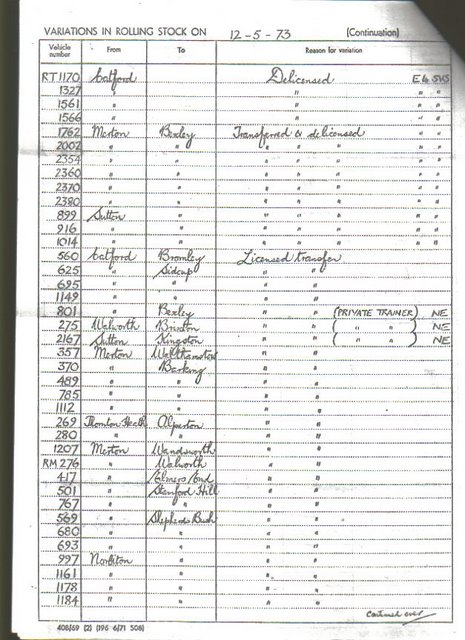 VARIATIONS IN ROLLING STOCK ON 12-5-73 (Continuation)
Vehicle number From To Reason for variation
RT 1170 Catford Delicensed E & SVS
1327 " " " "
1561 " " " "
1566 " " " "
1762 Merton Bexley Transferred & delicensed " "
2002 " " " " " " "
2354 " " " " " " "
2360 " " " " " " "
2370 " " " " " " "
2380 " " " " " " "
899 Sutton " " " " " "
916 " " " " " " "
1014 " " " " " " "
560 Catford Bromley Licensed transfer
625 " Sidcup " "
695 " " " "
1149 " " " "
801 " Bexley " " (PRIVATE TRAINER) NE
275 Walworth Brixton " " ( " " ) NE
2167 Sutton Kingston " " ( " " ) NE
357 Merton Walthamstow " "
370 " Barking " "
489 " " " "
785 " " " "
1112 " " " "
269 Thornton Heath Alperton " "
280 " " " "
1207 Merton Wandsworth " "
RM 276 " Walworth " "
417 " Elmers End " "
501 " Stamford Hill " "
767 " " " "
569 " Shepherds Bush " "
680 " " " "
693 " " " "
997 Norbiton " " "
1161 " " " "
1178 " " " "
1184 " " " "
Continued over
408/69 (2) (196 6/71 508)